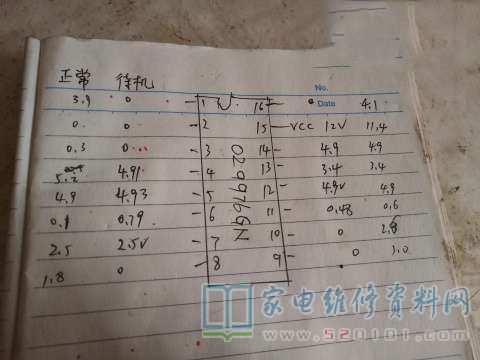 正常 待机
No.
Date
3.9 0 1 16 0 4.1
0. 0 2 15 VCC 12V 11.4
0.3 0 3 14 4.9 4.9
4.91 4 13 3.4 3.4
4.9 4.93 5 12 4.9V 4.9
0.79 6 11 0.48 0.6
2.5 2.5V 7 10 0
1.8 0 8 9 0 3.0
02997GN
家电维修资料网
www.520101.com